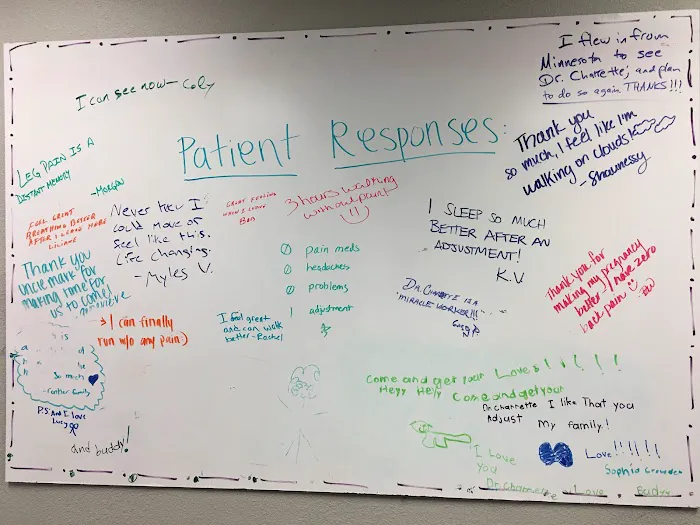 I flew in from
Minnesota to see
Dr. Charrette; and plan
to do so again THANKS!!!
I can see now - Coly
Patient Responses:
Thank you
so much, I feel like I'm
walking on clouds!
- Shawnessy
LEG PAIN IS A
DISTANT MEMORY
- MORGAN
FEEL GREAT
BREATHING BETTER
AFTER I LEAVE HERE
LILIANE
Never knew I
could move or
feel like this.
Life Changing.
- Myles V.
GREAT FEELING
WHEN I LEAVE
BEN
3 hours walking
without pain!
I SLEEP SO MUCH
BETTER AFTER AN
ADJUSTMENT!
K.V
Thank you
uncle mark for
making time for
us to come!
0 pain meds
0 headaches
0 problems
1 adjustment
DR. CHARRETTE IS A
"MIRACLE WORKER!!!"
Thank you for
making my pregnancy
better, I have zero
back pain
BW
→ I can finally
run w/o any pain:)
I feel great
and can walk
better - Rachel
is
So much
family
P.S. And I love
Lucy
and buddy!
Come and get your Loves!!!!!!
Heyy Heyy Come and get your
Dr. Charrette I like That you
Adjust My family!
I Love
You
Dr. Charrette
Love!!!!!!
Sophia
Love Buddy